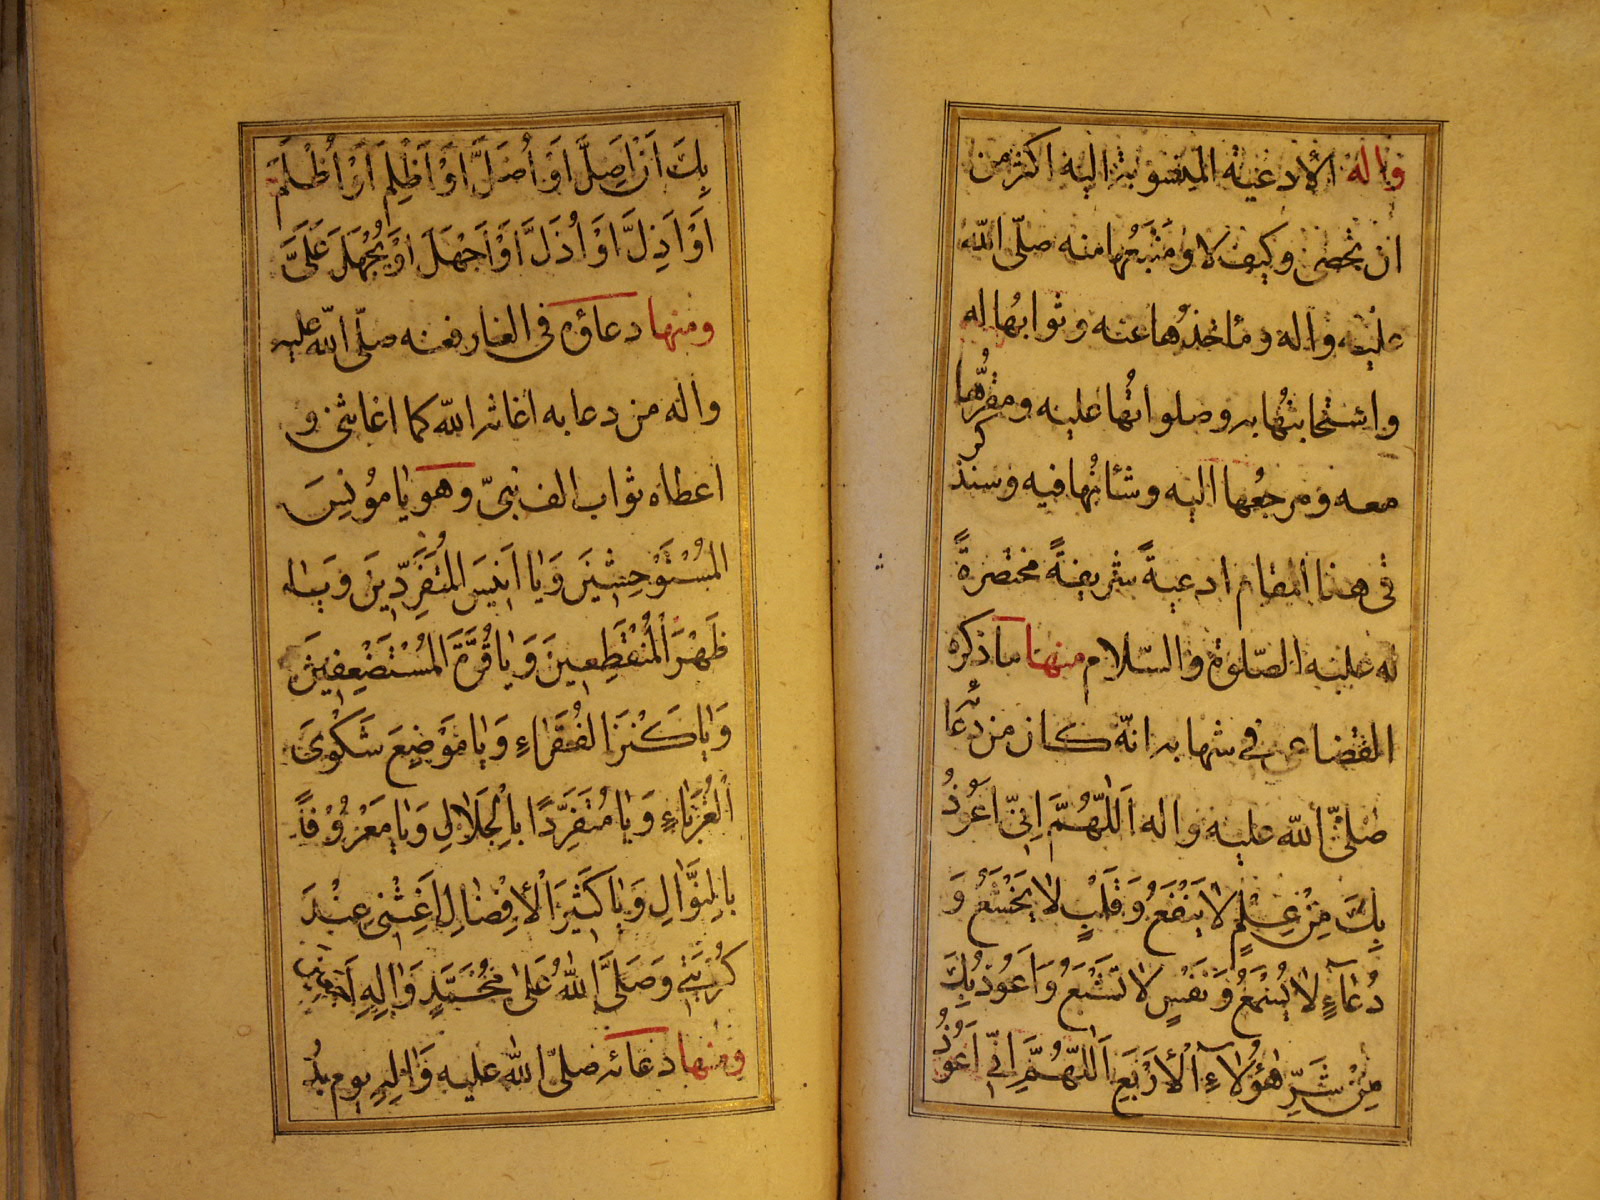 واله الادعية المنسوبة اليه اكثر من
ان تحصى وكيف لا ومنبعها منه صلّى الله
عليه واله وماخذها عنه وثوابها له
واستجابتها به وصلواتها عليه ومقرّها
معه ومرجعها اليه وشانها فيه وسنذكر
فى هذا المقام ادعيةً شريفةً مختصرةً
له عليه الصّلوة والسّلام منها ما ذكره
القضاعى فى شهابه انّه كان من دُعَا
صلىّ الله عليه واله اَللّٰهُمَّ اِنّى اَعُوذُ
بِكَ مِنْ عِلْمٍ لاٰ يَنْفَعُ وَقَلْبٍ لاٰ يَخْشَعُ وَ
دُعَآءٍ لاٰ يُسْمَعُ وَنَفْسٍ لاٰ تَشْبَعُ وَاَعُوذُ بِكَ
مِنْ شَرِّ هٰؤُلاٰۤءِ اْلأَرْبَعِ اَللّٰهُمَّ اِنّى اَعُوذُ
بِكَ اَنْ اَضِلَّ اَوْ اُضَلَّ اَوْ اَظْلِمَ اَوْ اُظْلَمَ
اَوْ اَذِلَّ اَوْ اُذَلَّ اَوْ اَجْهَلَ اَوْ يُجْهَلَ عَلَىَّ
ومنها دعاؤه فى الغار فعنه صلّى الله عليه
واله من دعا به اغاثه الله كما اغاثنى و
اعطاه ثواب الف نبىّ وهو يٰا مُونِسَ
الْمُسْتَوْحِشينَ وَيٰا اَنيسَ الْمُتَفَرِّدينَ وَيٰا
ظَهْرَ الْمُنْقَطِعينَ وَيٰا قُرَّةَ الْمُسْتَضْعِفينَ
وَيٰا كَنْزَ الْفُقَرٰاءِ وَيٰا مَوْضِعَ شَكْوىَ
الْغُرَبٰاءِ وَيٰا مُتَفَرِّدًا بِالْجَلاٰلِ وَيٰا مَعْرُوْفاً
بِالنَّوٰالِ وَيٰا كَثيرَ اْلأِفْضٰالِ اَغِثْنى عِنْدَ
كُرْبَتى وَصَلَّى اللهُ عَلىٰ مُحَمَّدٍ وَاٰلِهِ اَجْمَعينَ
ومنها دعائه صلىّ الله عليه وَاٰلِهِ يوم بدُ